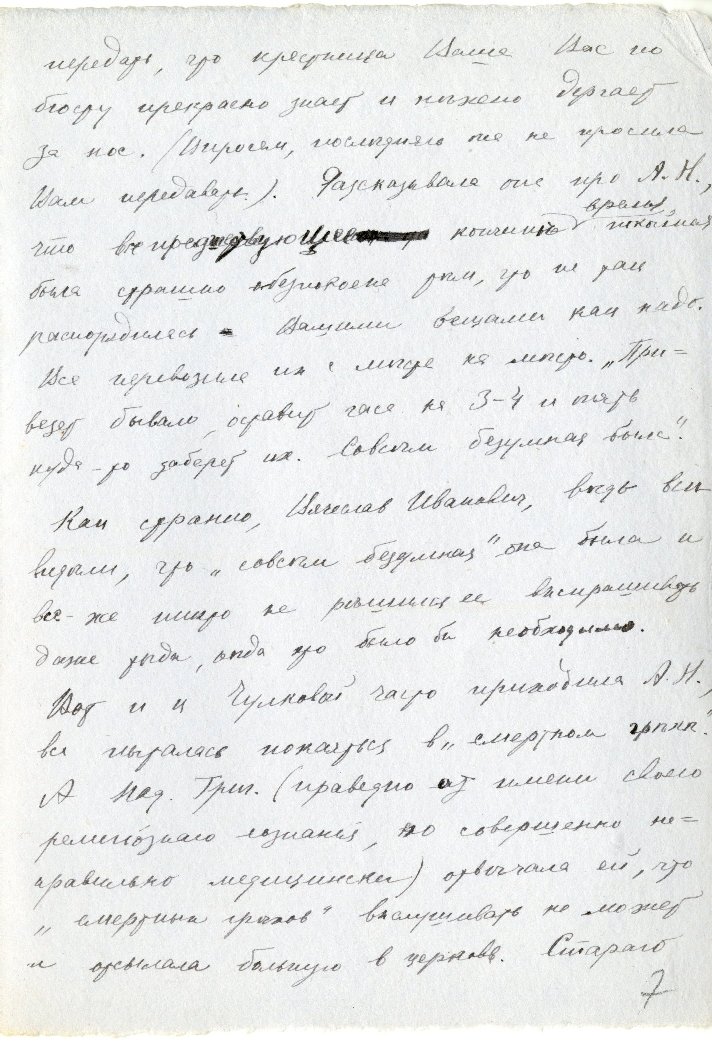 передать, что крестница Ваша Вас по
бюсту прекрасно знает и нежно дергает
за нос. (Впрочем, последняго она не просила
Вам передавать). Разсказывала она про А. Н.,
что все предшествующее кончине время покойная
была страшно обезпокоена тем, что не так
распорядилась Вашими вещами как надо.
Все перевозила их с места на место. „При-
везет бывало, оставит часа на 3-4 и опять
куда-то заберет их. Совсем безумная была".
Как странно, Вячеслав Иванович, ведь все
видели, что „совсем безумная" она была и
все-же никто не решился ее выспрашивать
даже тогда, когда это было бы необходимо.
Вот и к Чулковой часто приходила А. Н.,
все пыталась покаяться в „смертном грехе".
А Над. Григ. (праведно от имени своего
религіознаго сознанія, но совершенно не-
правильно медицински) отвечала ей, что
„смертных грехов" выслушивать не может
и отсылала больную в церковь. Стараго
7